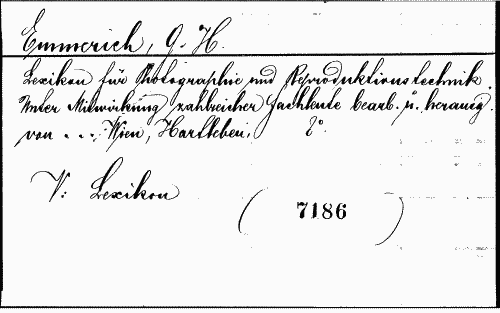 Emmerich, G. H.
Lexikon für Photographie und Reproduktionstechnik.
Unter Mitwirkung zahlreicher Fachleute bearb. u. herausg.
von ... Wien, Hartleben, 8°.
V: Lexikon
( 7186 )